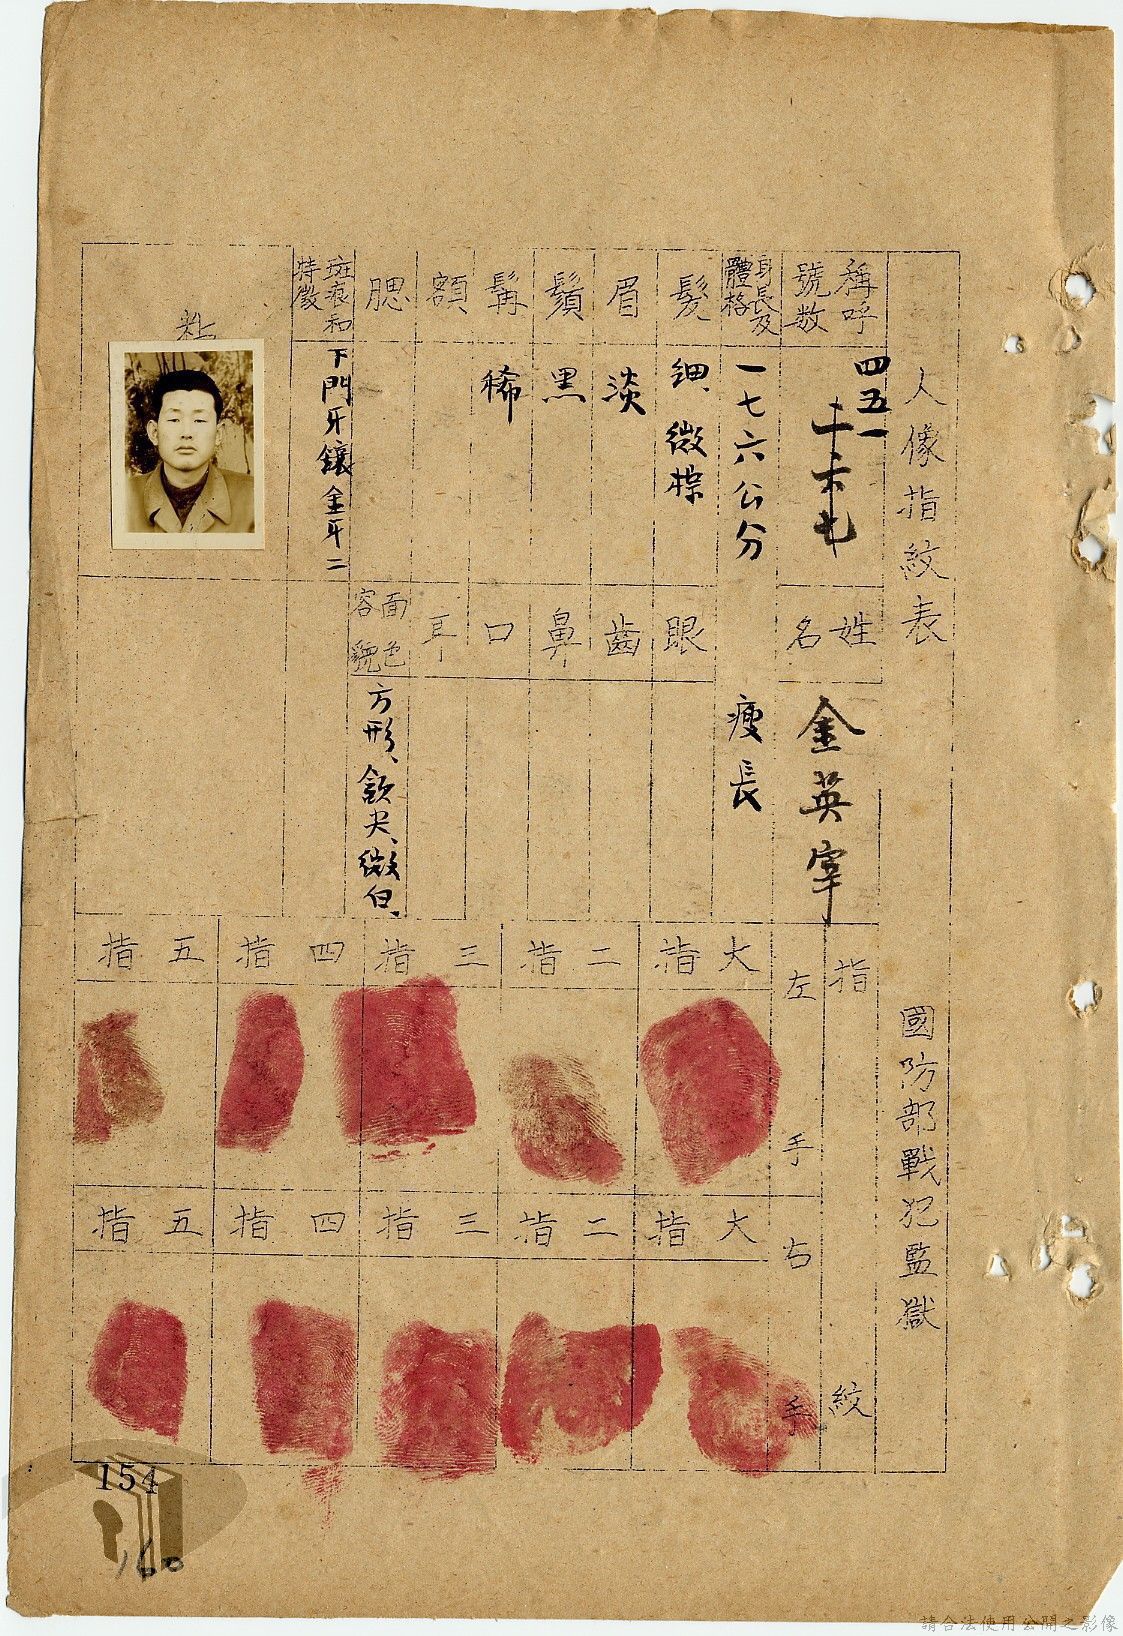 人像指紋表 國防部戰犯監獄
稱呼號數
四五一
二六七
姓名
金英宰
身長及體格
一七六公分 瘦長
髮
細、微棕
眼
眉
淡
齒
鬚
黑
鼻
髯
稀
口
額
耳
腮
面色容貌
方形、頷尖、微白、
斑痕和特徵
下門牙鑲金牙二
粘
指紋
左手
大指
二指
三指
四指
五指
右手
大指
二指
三指
四指
五指
154
160
請合法使用公開之影像